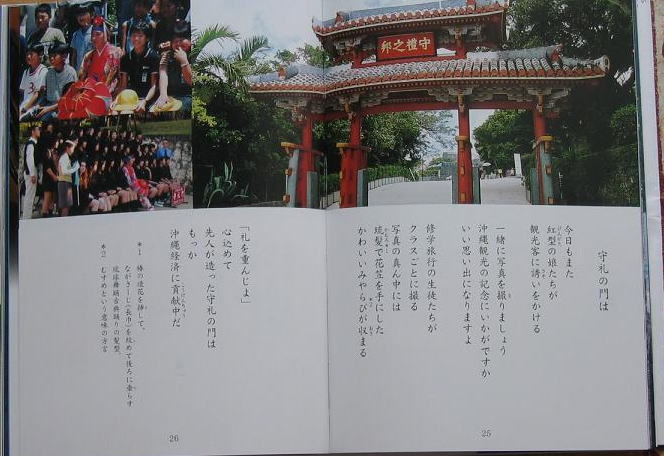 守禮之邦
守礼の門は
今日もまた
紅型の娘たちが
観光客に誘いをかける
一緒に写真を撮りましょう
沖縄観光の記念にいかがですか
いい思い出になりますよ
修学旅行の生徒たちが
クラスごとに撮る
写真の真ん中には
琉髪で花笠を手にした
かわいいみやらびが収まる
25
「礼を重んじよ」
心込めて
先人が造った守礼の門は
もっか
沖縄経済に貢献中だ
*1 椿の造花を挿して、
ながさーじ(長巾)を絞めて後ろに垂らす
琉球舞踊古典踊りの髪型。
*2 むすめという意味の方言
26